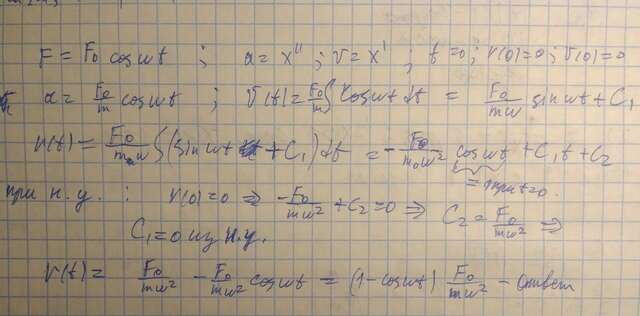 F = F₀ cos ωt ; a = x'' ; v = x' ; t = 0 ; r(0) = 0 ; v(0) = 0
a = F₀/m cos ωt ; v(t) = F₀/m ∫ cos ωt dt = F₀/mω sin ωt + C₁
r(t) = F₀/mω ∫ (sin ωt + C₁) dt = - F₀/mω² cos ωt + C₁t + C₂
= 1 при t=0.
при н.у. : r(0) = 0 ⇒ - F₀/mω² + C₂ = 0 ⇒ C₂ = F₀/mω² ⇒
C₁ = 0 из н.у.
r(t) = F₀/mω² - F₀/mω² cos ωt = (1 - cos ωt) F₀/mω² - ответ